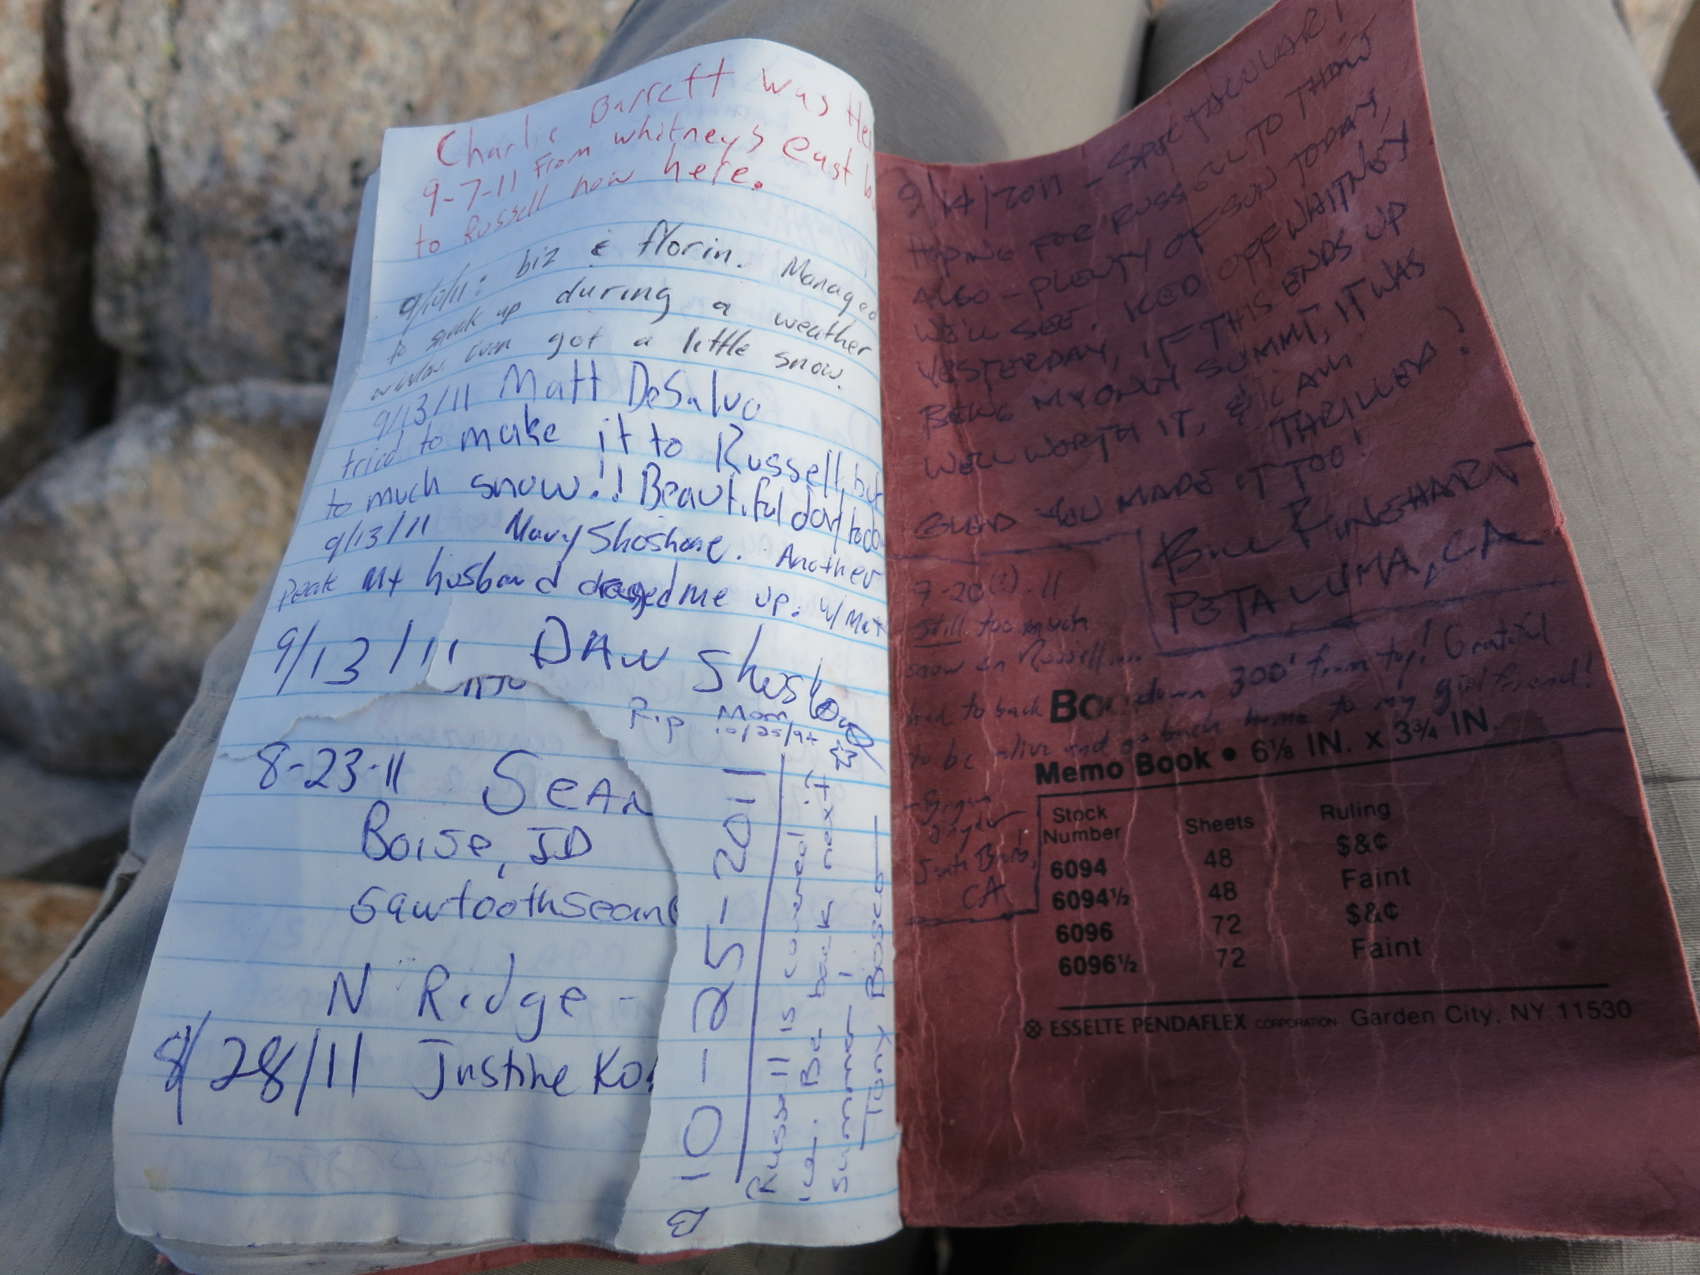 Charlie Barrett was
9-7-11 From whitneys east
to Russell now here.
9/10/11: biz & florin. Managed
to sneak up during a weather
window even got a little snow.
9/13/11 Matt DeSalvo
tried to make it to Russell, but
to much snow!! Beautiful day
9/13/11 Mary Shoshone. Another
Peak my husband dragged me up. w/ Matt
9/13/11 DAW
R.i.p Mom
8-23-11 SeAn
Boise, ID
sawtoothsean
N Ridge -
8/28/11 Justine
10-25-2011
Russell is covered in
ice. Be back next
summer!
- Tony Bosco
9/14/2011 - SPECTACULAR!
HOPING FOR RUSSELL TO THAW
ALSO - PLENTY OF SUN TODAY,
WE'LL SEE. ICED OFF WHITNEY
YESTERDAY, IF THIS ENDS UP
BEING MY ONLY SUMMIT, IT WAS
WELL WORTH IT, & I AM
THRILLED!
GLAD YOU MADE IT TOO!
BILL RINEHART
PETALUMA, CA
still too much
snow on Russell...
had to back down 300' from top! Grateful
to be alive and go back home to my girlfriend!
CA
Memo Book • 6⅛ IN. x 3¾ IN.
Stock Number Sheets Ruling
6094 48 $&¢
6094½ 48 Faint
6096 72 $&¢
6096½ 72 Faint
ESSELTE PENDAFLEX CORPORATION Garden City, NY 11530